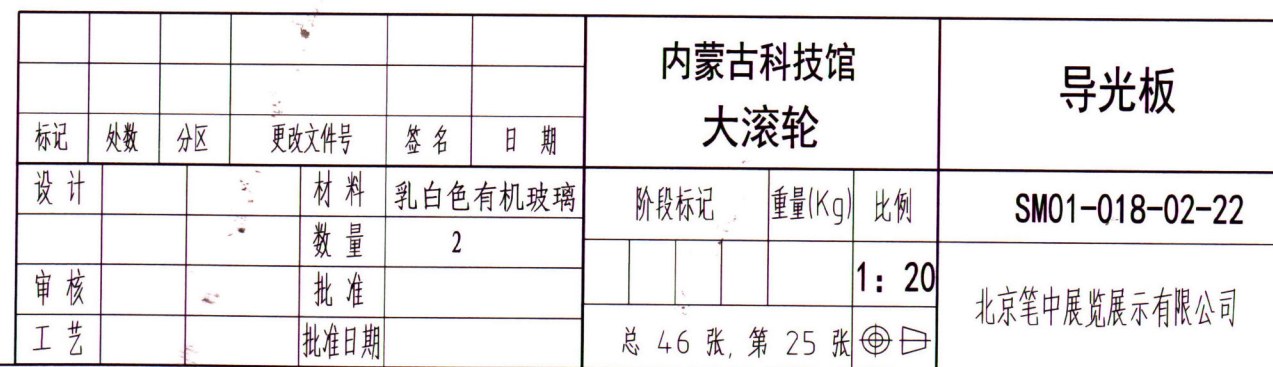 标记 处数 分区 更改文件号 签名 日期
设计 材料 乳白色有机玻璃
数量 2
审核 批准
工艺 批准日期
内蒙古科技馆
大滚轮
阶段标记 重量(Kg) 比例
1: 20
总 46 张, 第 25 张
导光板
SM01-018-02-22
北京笔中展览展示有限公司